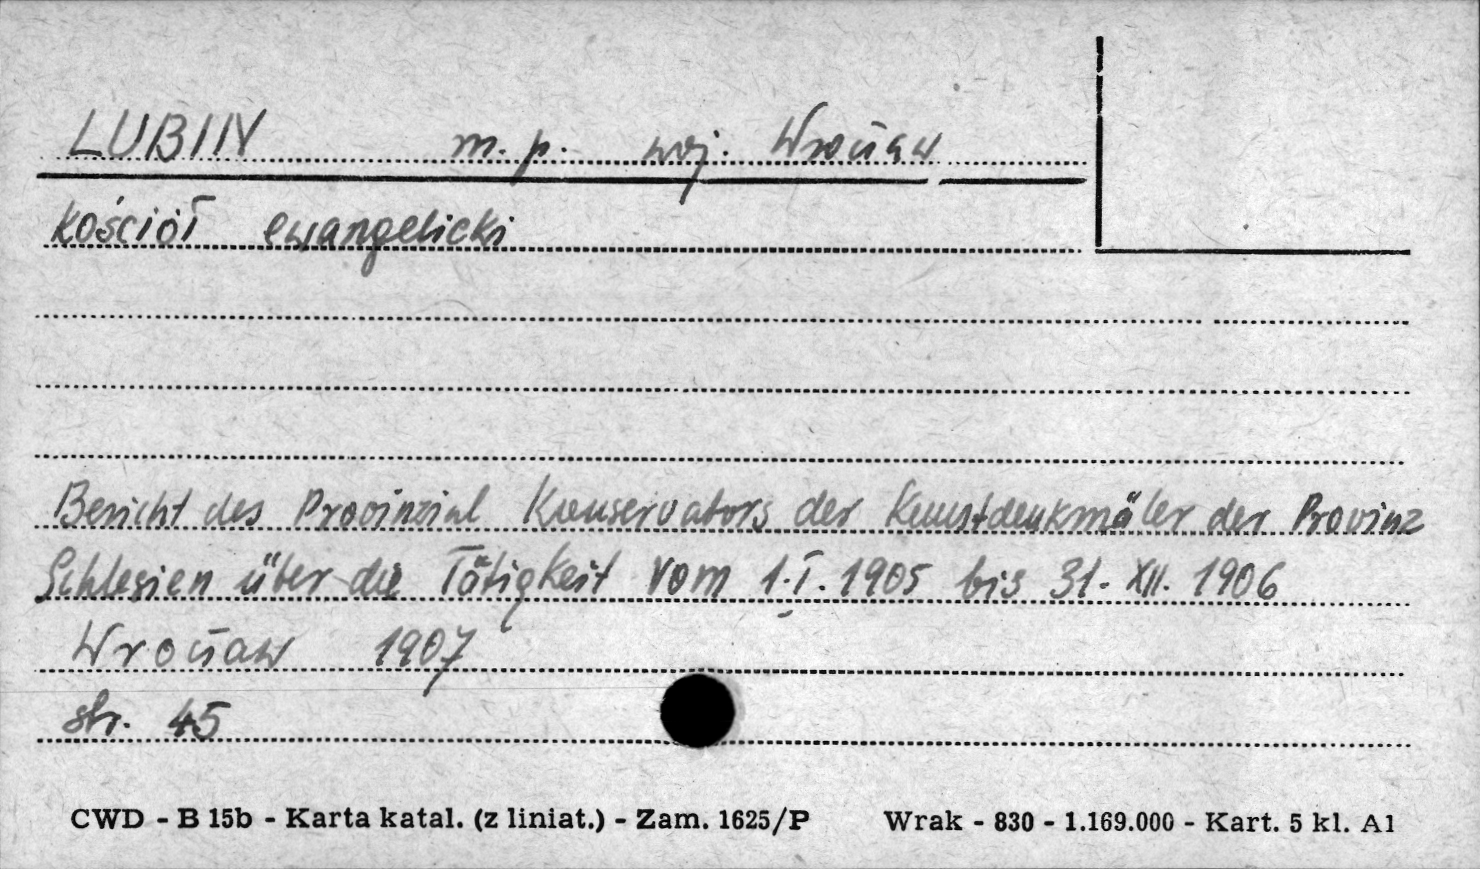 LUBIN m. p. woj. Wrocław
kościół ewangelicki
Bericht des Provinzial Konservators der Kunstdenkmäler der Provinz
Schlesien über die Tätigkeit vom 1.I.1905 bis 31.XII.1906
Wrocław 1907
str. 45
CWD - B 15b - Karta katal. (z liniat.) - Zam. 1625/P Wrak - 830 - 1.169.000 - Kart. 5 kl. A1